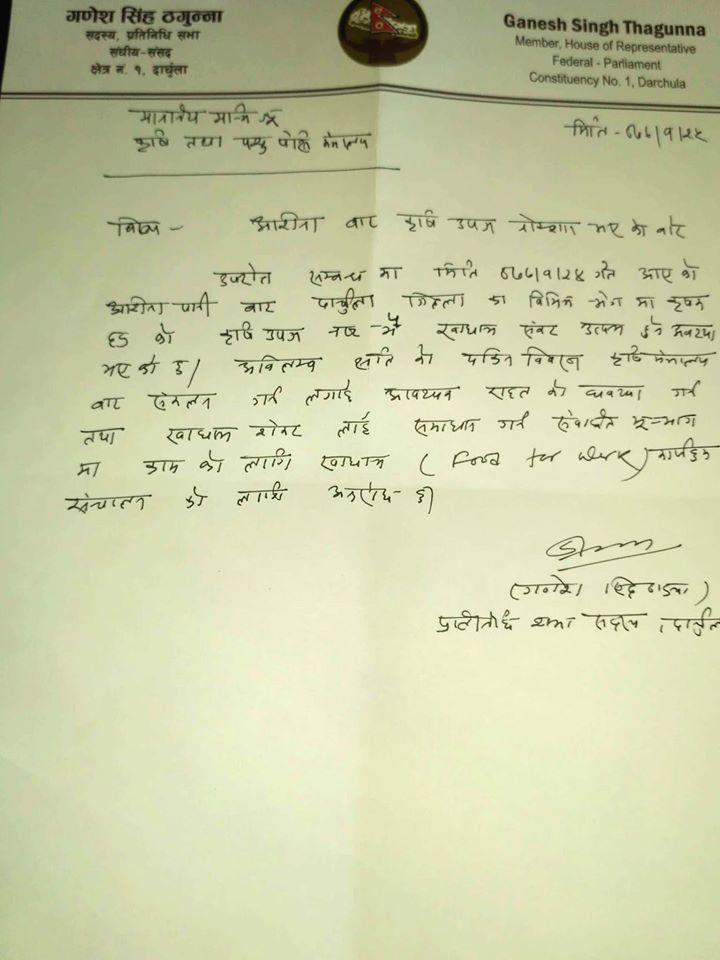 गणेश सिंह ठगुन्ना
सदस्य, प्रतिनिधि सभा
संघीय-संसद
क्षेत्र नं. १, दार्चुला
Ganesh Singh Thagunna
Member, House of Representative
Federal - Parliament
Constituency No. 1, Darchula
माननीय मन्त्रि ज्यू
कृषि तथा पशु मन्त्रालय
मिति - ०७७/१/२५
विषय - असीना बाट कृषि उपज भए को बारे
उपरोक्त सम्बन्ध मा मिति ०७७/१/२४ गते आए को
असीना पानी बाट दार्चुला जिल्ला का विभिन्न भेग मा कृषक
हरु को कृषि उपज नष्ट भै खाद्यान्न संकट उत्पन्न हुने अवस्था
भए को छ। अविलम्ब क्षति को विवरण कृषि मन्त्रालय
बाट संकलन गर्न लगाई आवश्यक राहत को व्यवस्था गर्न
तथा खाद्यान्न संकट लाई समाधान गर्न संबन्धित भू-भाग
मा काम को लागि खाद्यान्न (Food for Work) कार्यक्रम
संचालन को लागि अनुरोध छ।
(गणेश सिंह ठगुन्ना)
प्रतिनिधि सभा सदस्य, दार्चुला